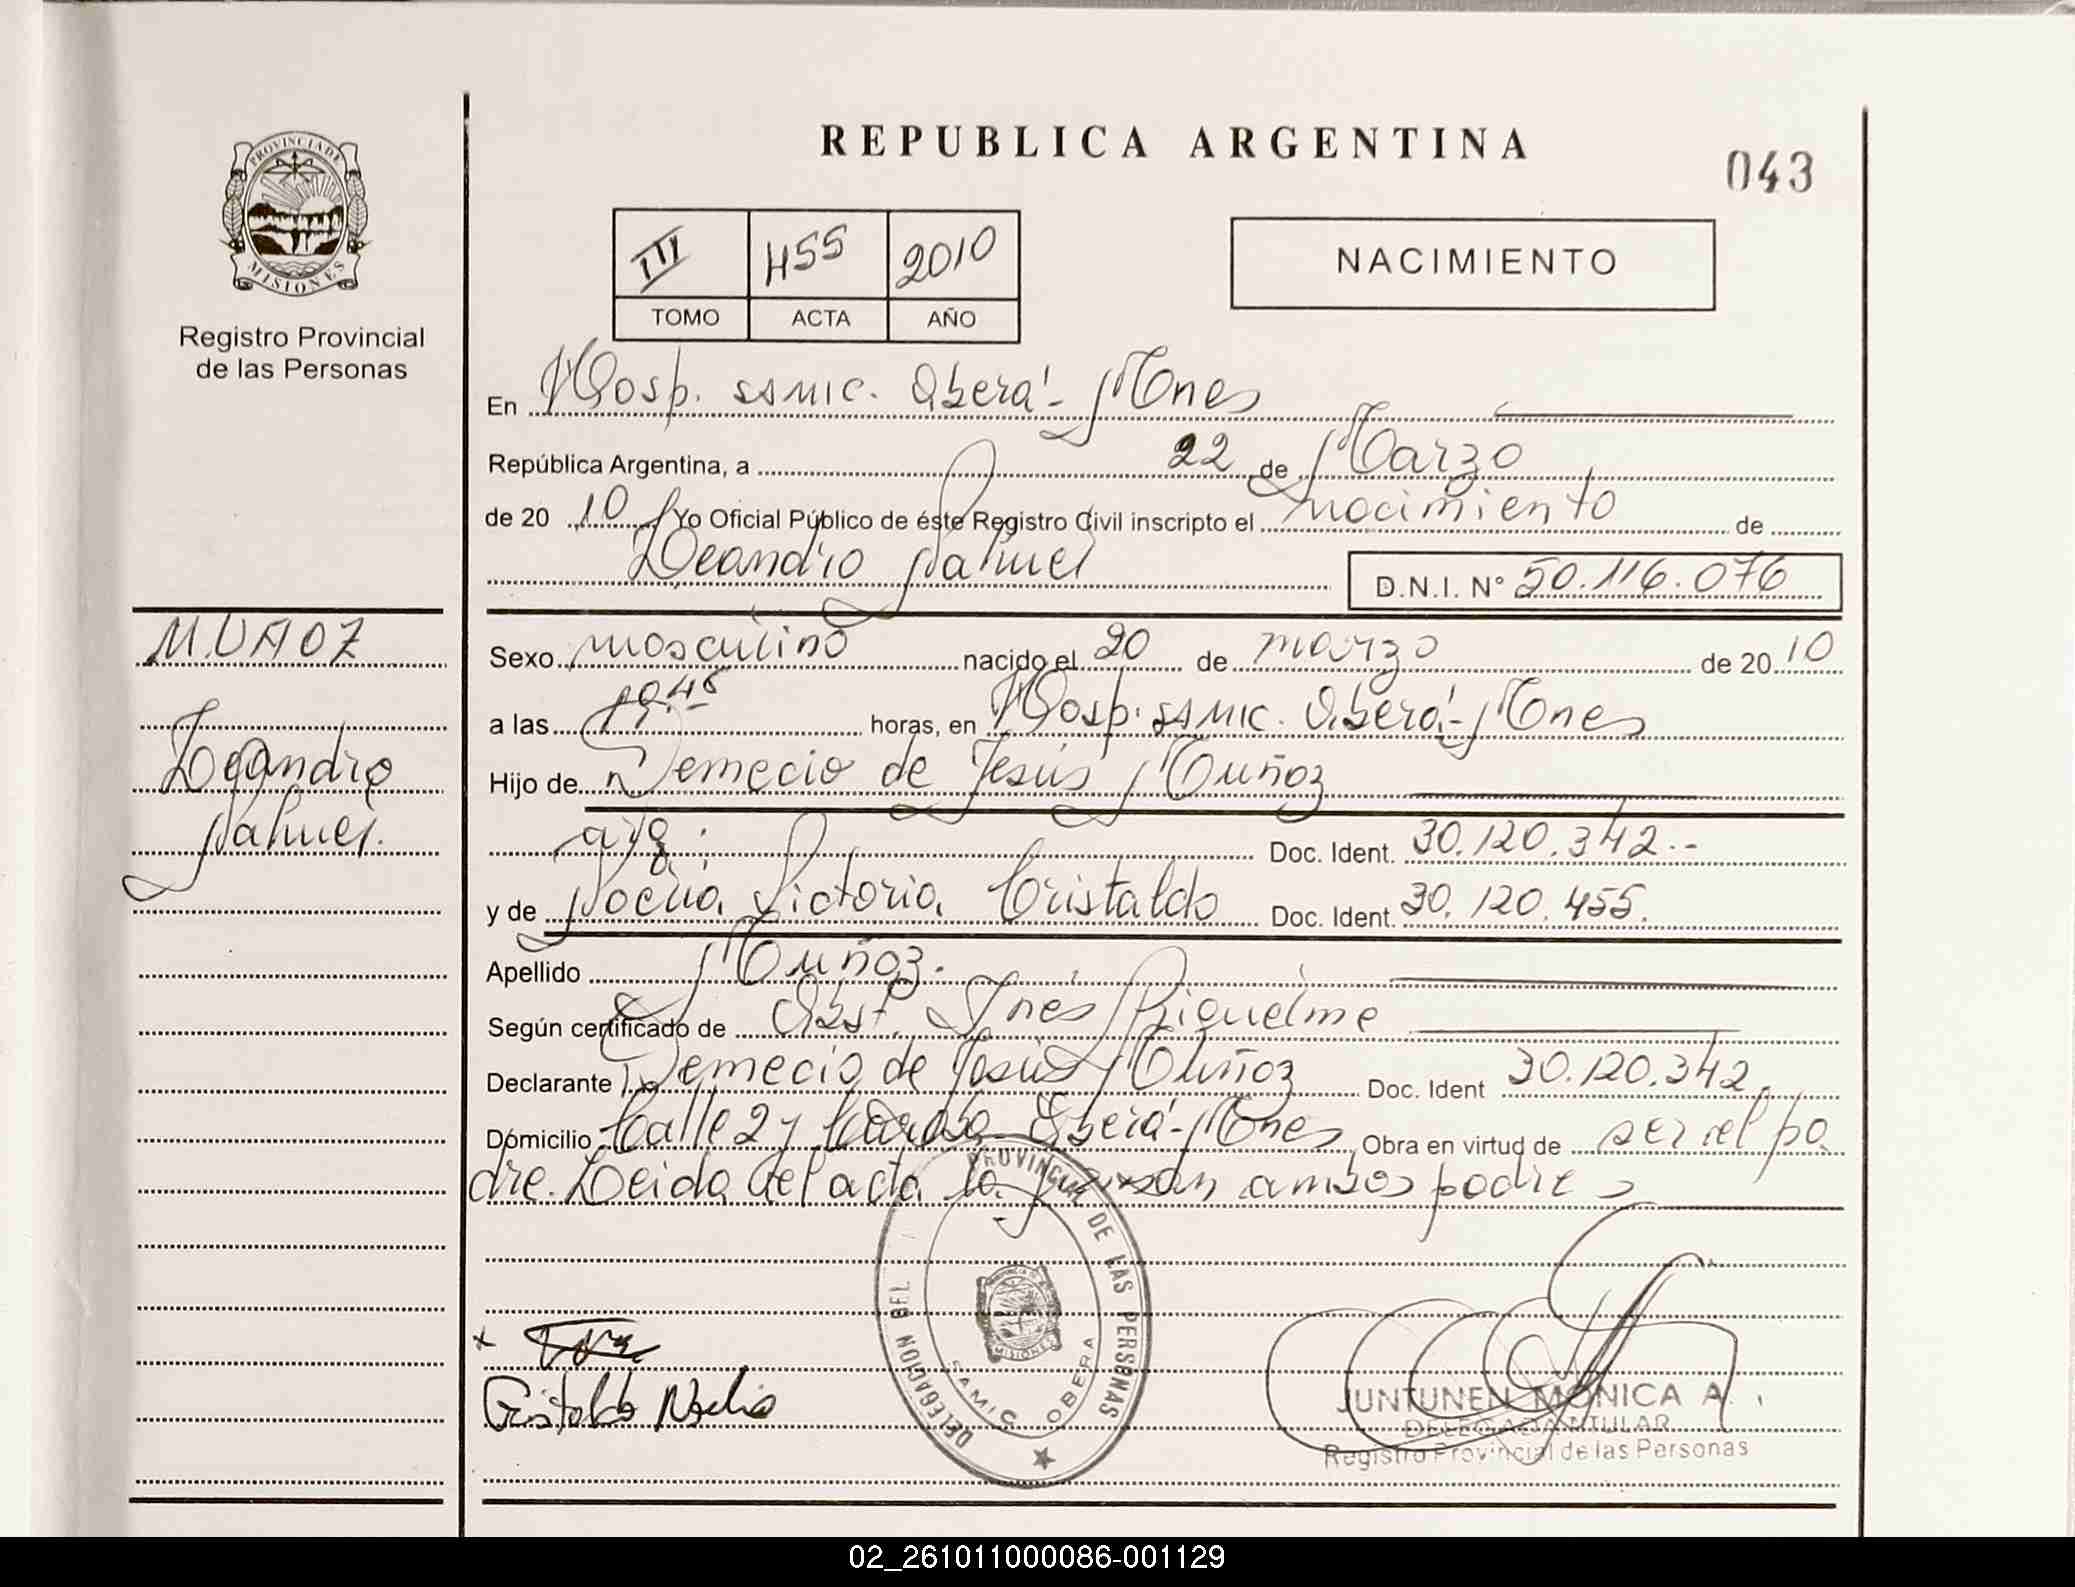 REPUBLICA ARGENTINA
043
PROVINCIA DE
MISIONES
Registro Provincial
de las Personas
III 455 2010
TOMO ACTA AÑO
NACIMIENTO
En Hosp. SAMIC. Oberá - Mnes
República Argentina, a 22 de Marzo
de 20 10 Yo Oficial Público de éste Registro Civil inscripto el nacimiento de
Leandro Nahuel
D.N.I. N° 50.116.076
MUÑOZ
Leandro
Nahuel.
Sexo masculino nacido el 20 de marzo de 20 10
a las horas, en Hosp. SAMIC. Oberá - Mnes
Hijo de Demecio de Jesús Muñoz
arg. Doc. Ident. 30.120.342.-
y de Victoria Cristaldo Doc. Ident. 30.120.455.
Apellido Muñoz.
Según certificado de Obst. Inés Riquelme
Declarante Demecio de Jesús Muñoz Doc. Ident 30.120.342.
Domicilio Calle 2 y Oberá - Mnes Obra en virtud de ser el pa
dre. Leida del acta la firman ambos padres
DELEGACION DEL PROVINCIAL DE LAS PERSONAS
SAMIC OBERA
MISIONES
Cristaldo
JUNTUNEN MONICA A.
DELEGADA TITULAR
Registro Provincial de las Personas
02_261011000086-001129